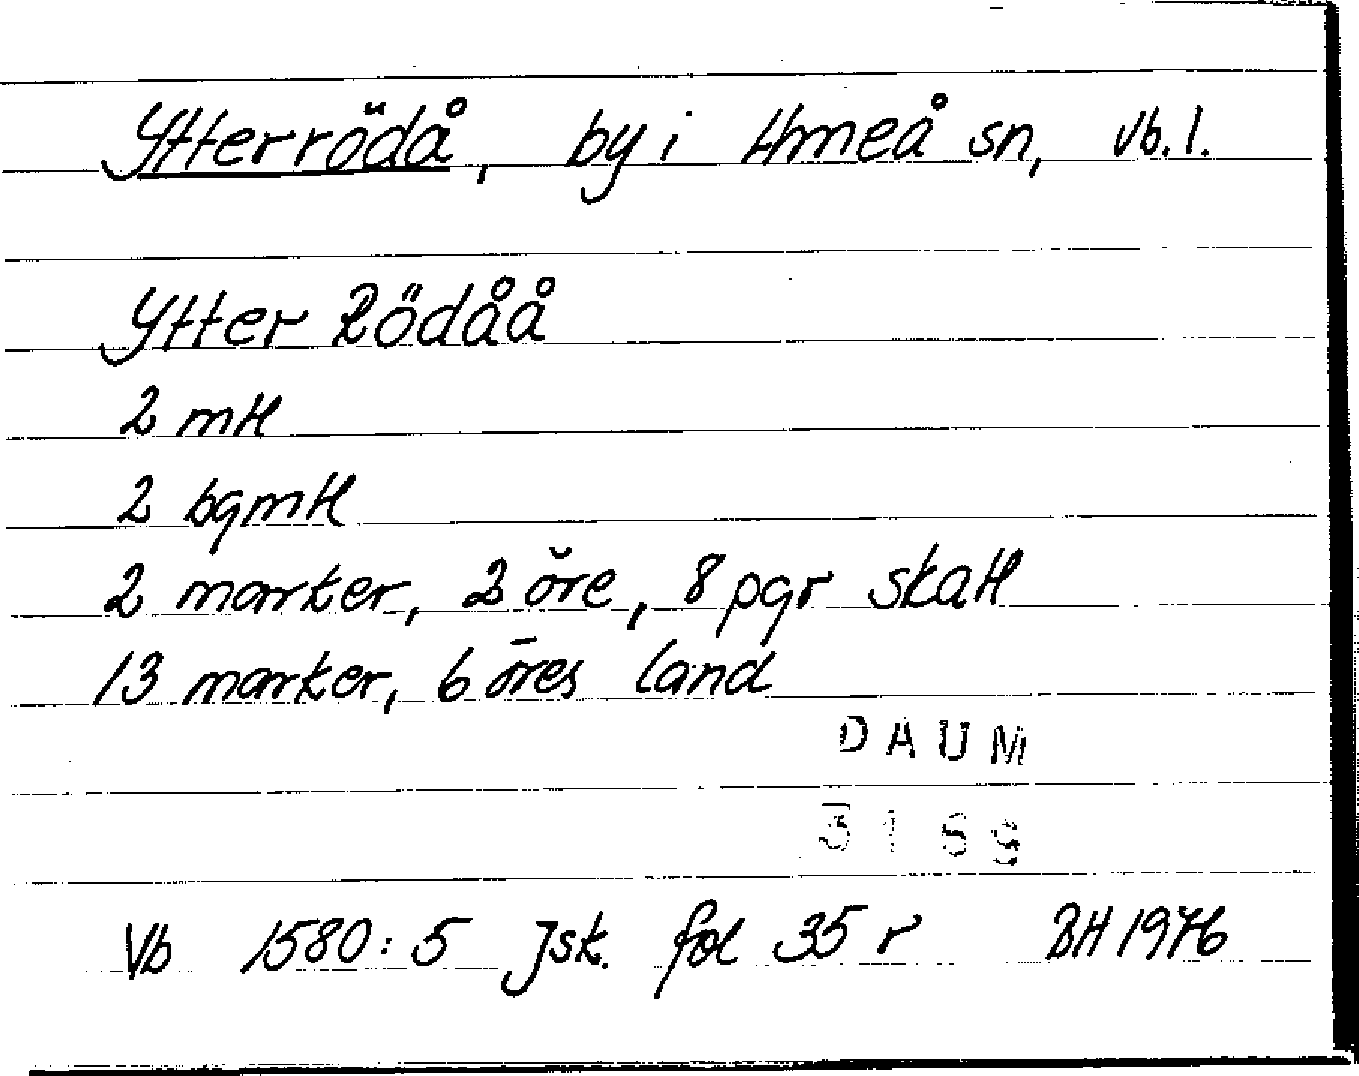 Ytterrödå, by i Umeå sn, Vb. l.
Ytter Rödåå
2 mtl
2 bgmtl
2 marker, 2 öre, 8 pgr skatt
13 marker, 6 öres land
DAUM
Vb 1580:5 Jsk. fol 35 r BH 1976